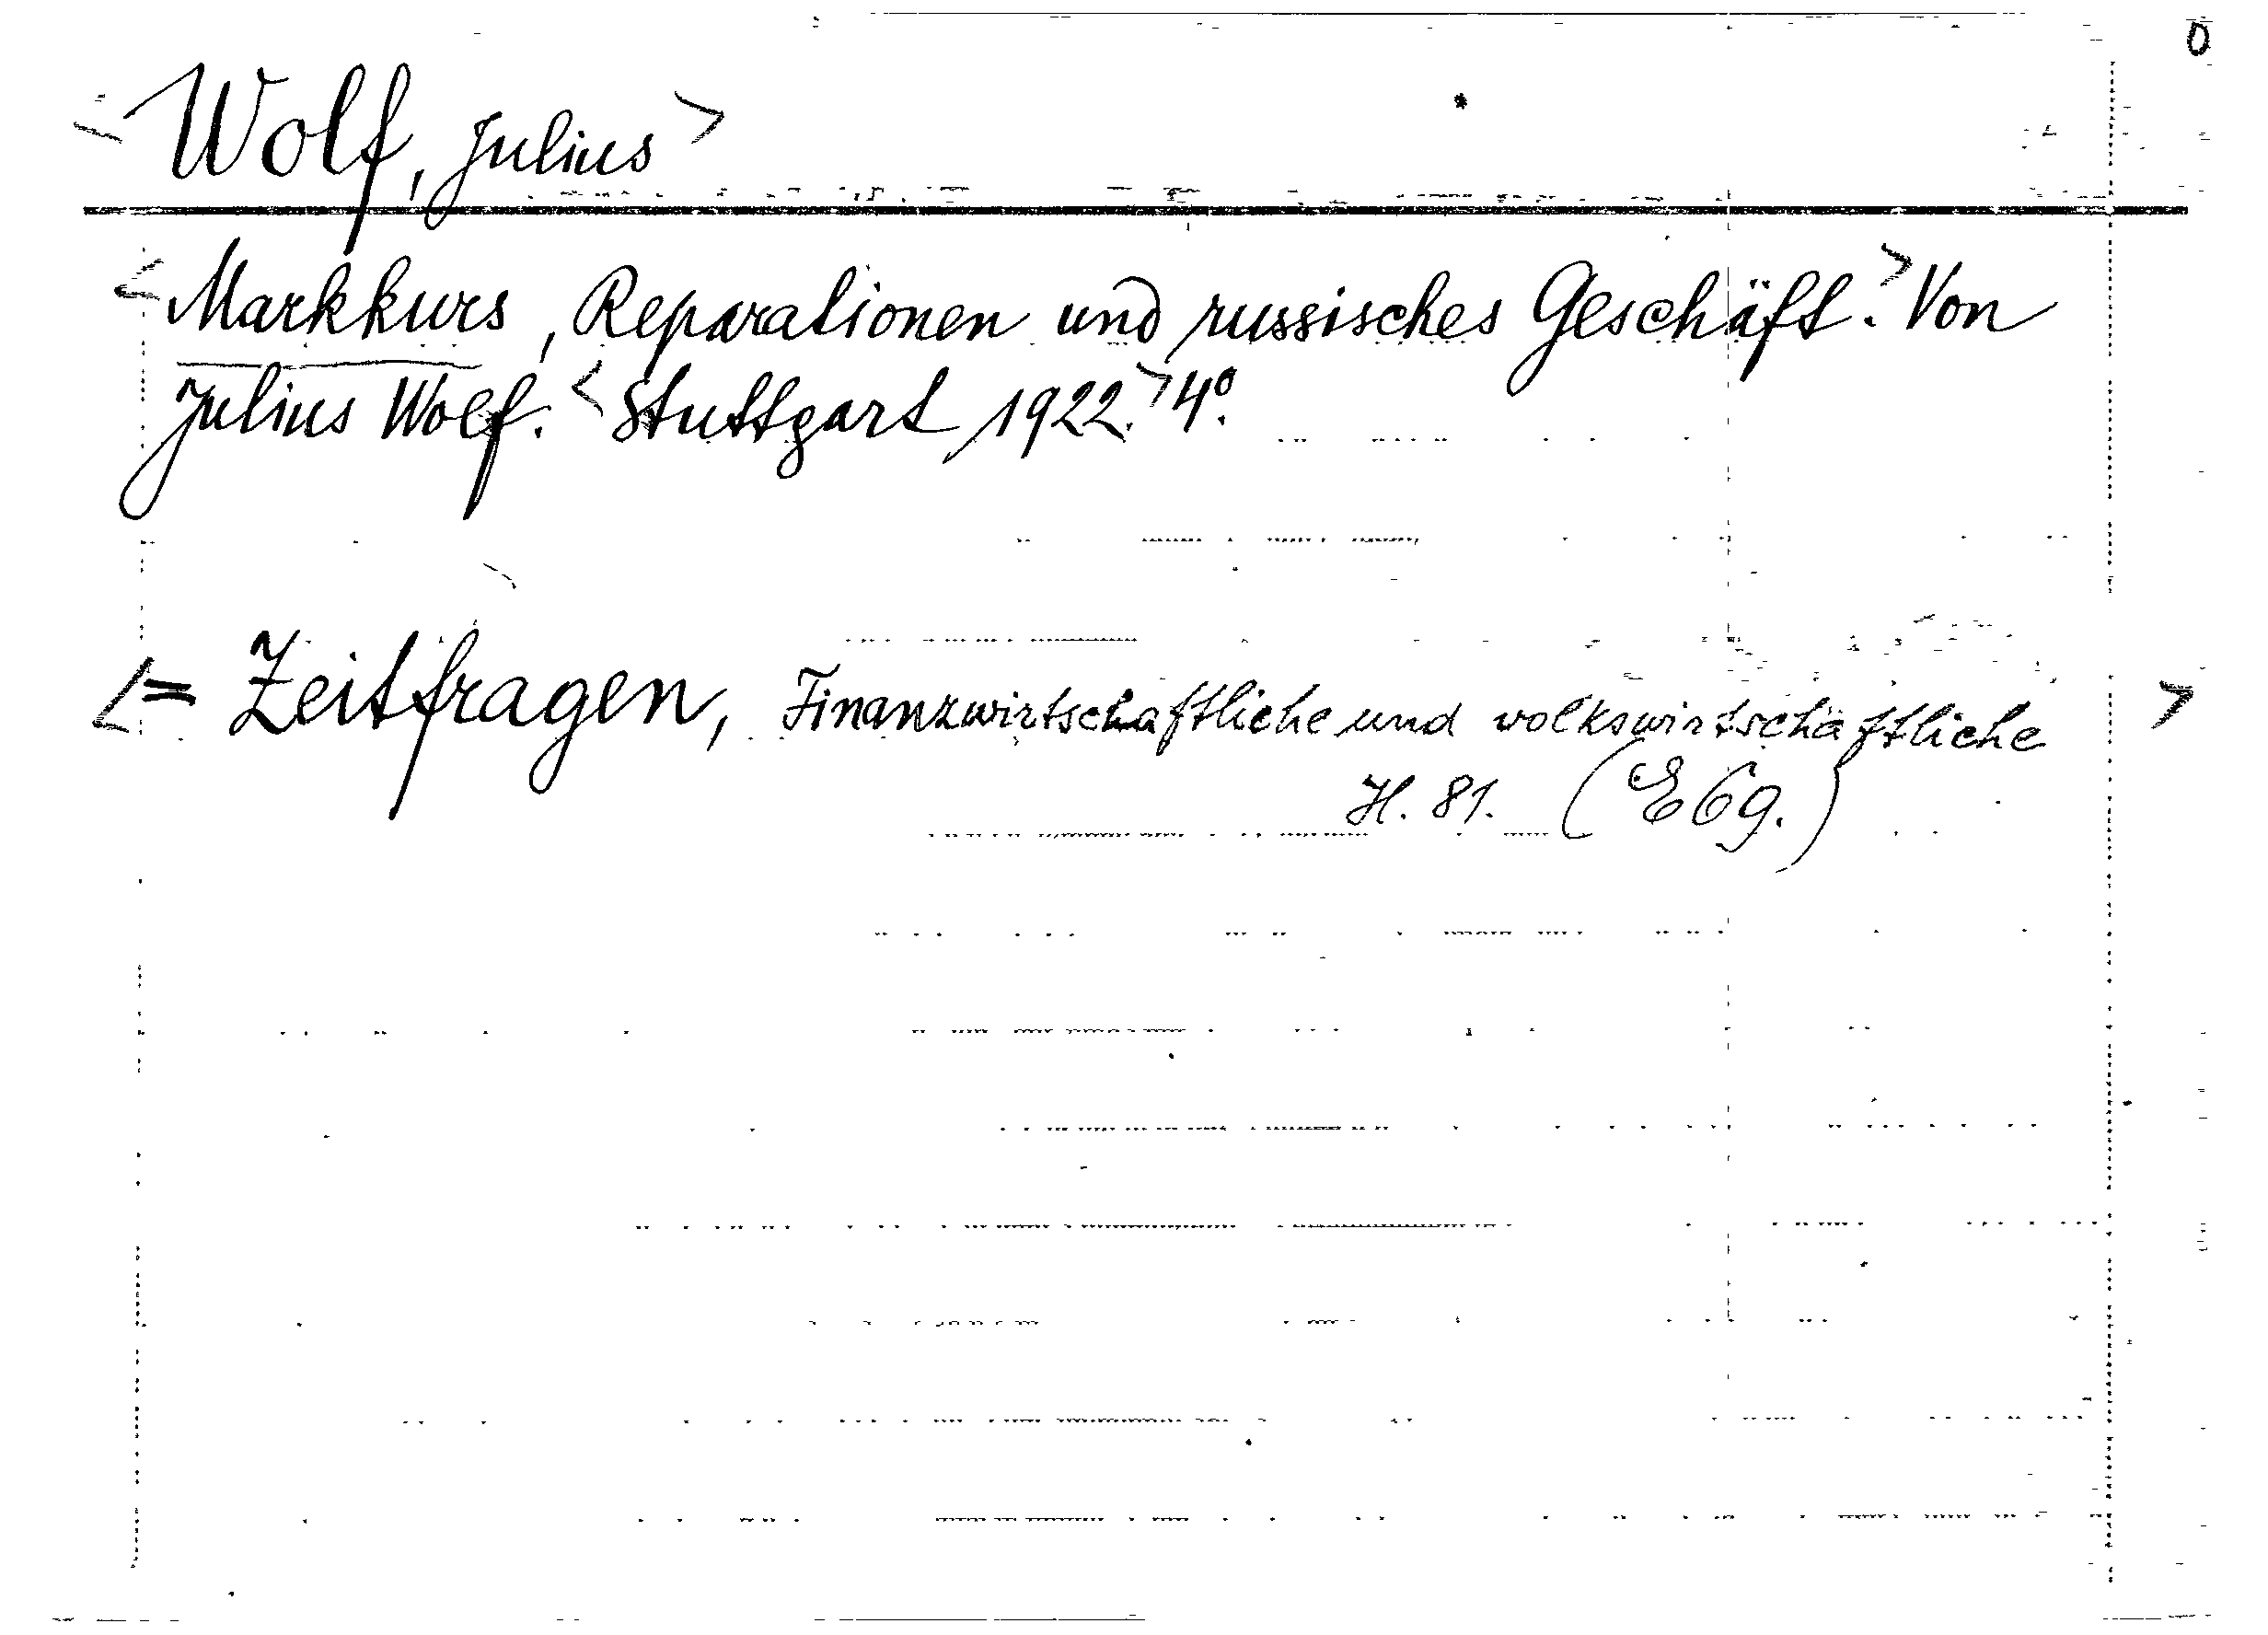 0
<Wolf, Julius>
<Markkurs, Reparationen und russisches Geschäft.> Von
Julius Wolf. <Stuttgart 1922.> 4°.
<= Zeitfragen, Finanzwirtschaftliche und volkswirtschaftliche >
H. 81. (E 69.)